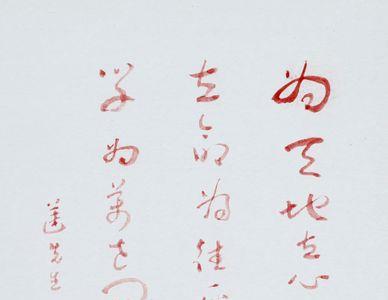 为天地立心
立命为往
学为万世
莲先生